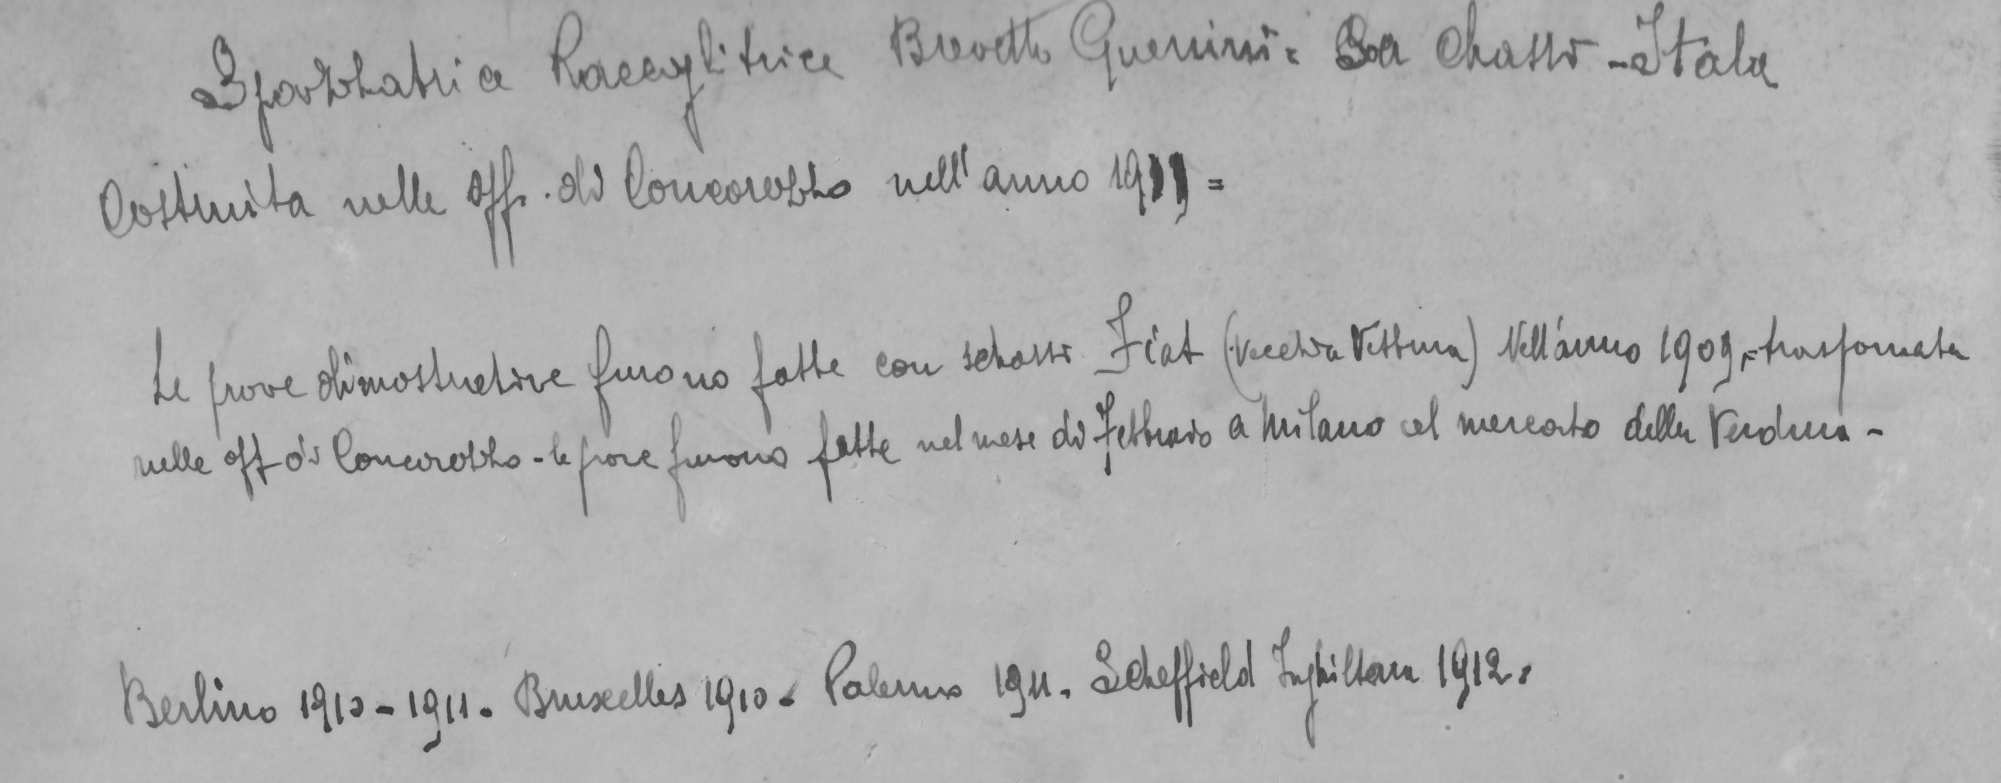 Spazzatrice Raccoglitrice Brevetto Guerrini = Su chassi - Itala
Costruita nelle Off. di Concorezzo nell'anno 1911 =
Le prove dimostrative furono fatte con schassi Fiat (vecchia Vettura) Nell'anno 1909,= trasformata
nelle off di Concorezzo - le prove furono fatte nel mese di Febbraio a Milano al mercato della Verdura -
Berlino 1910 - 1911. Bruxelles 1910. Palermo 1911. Scheffield Inghilterra 1912.